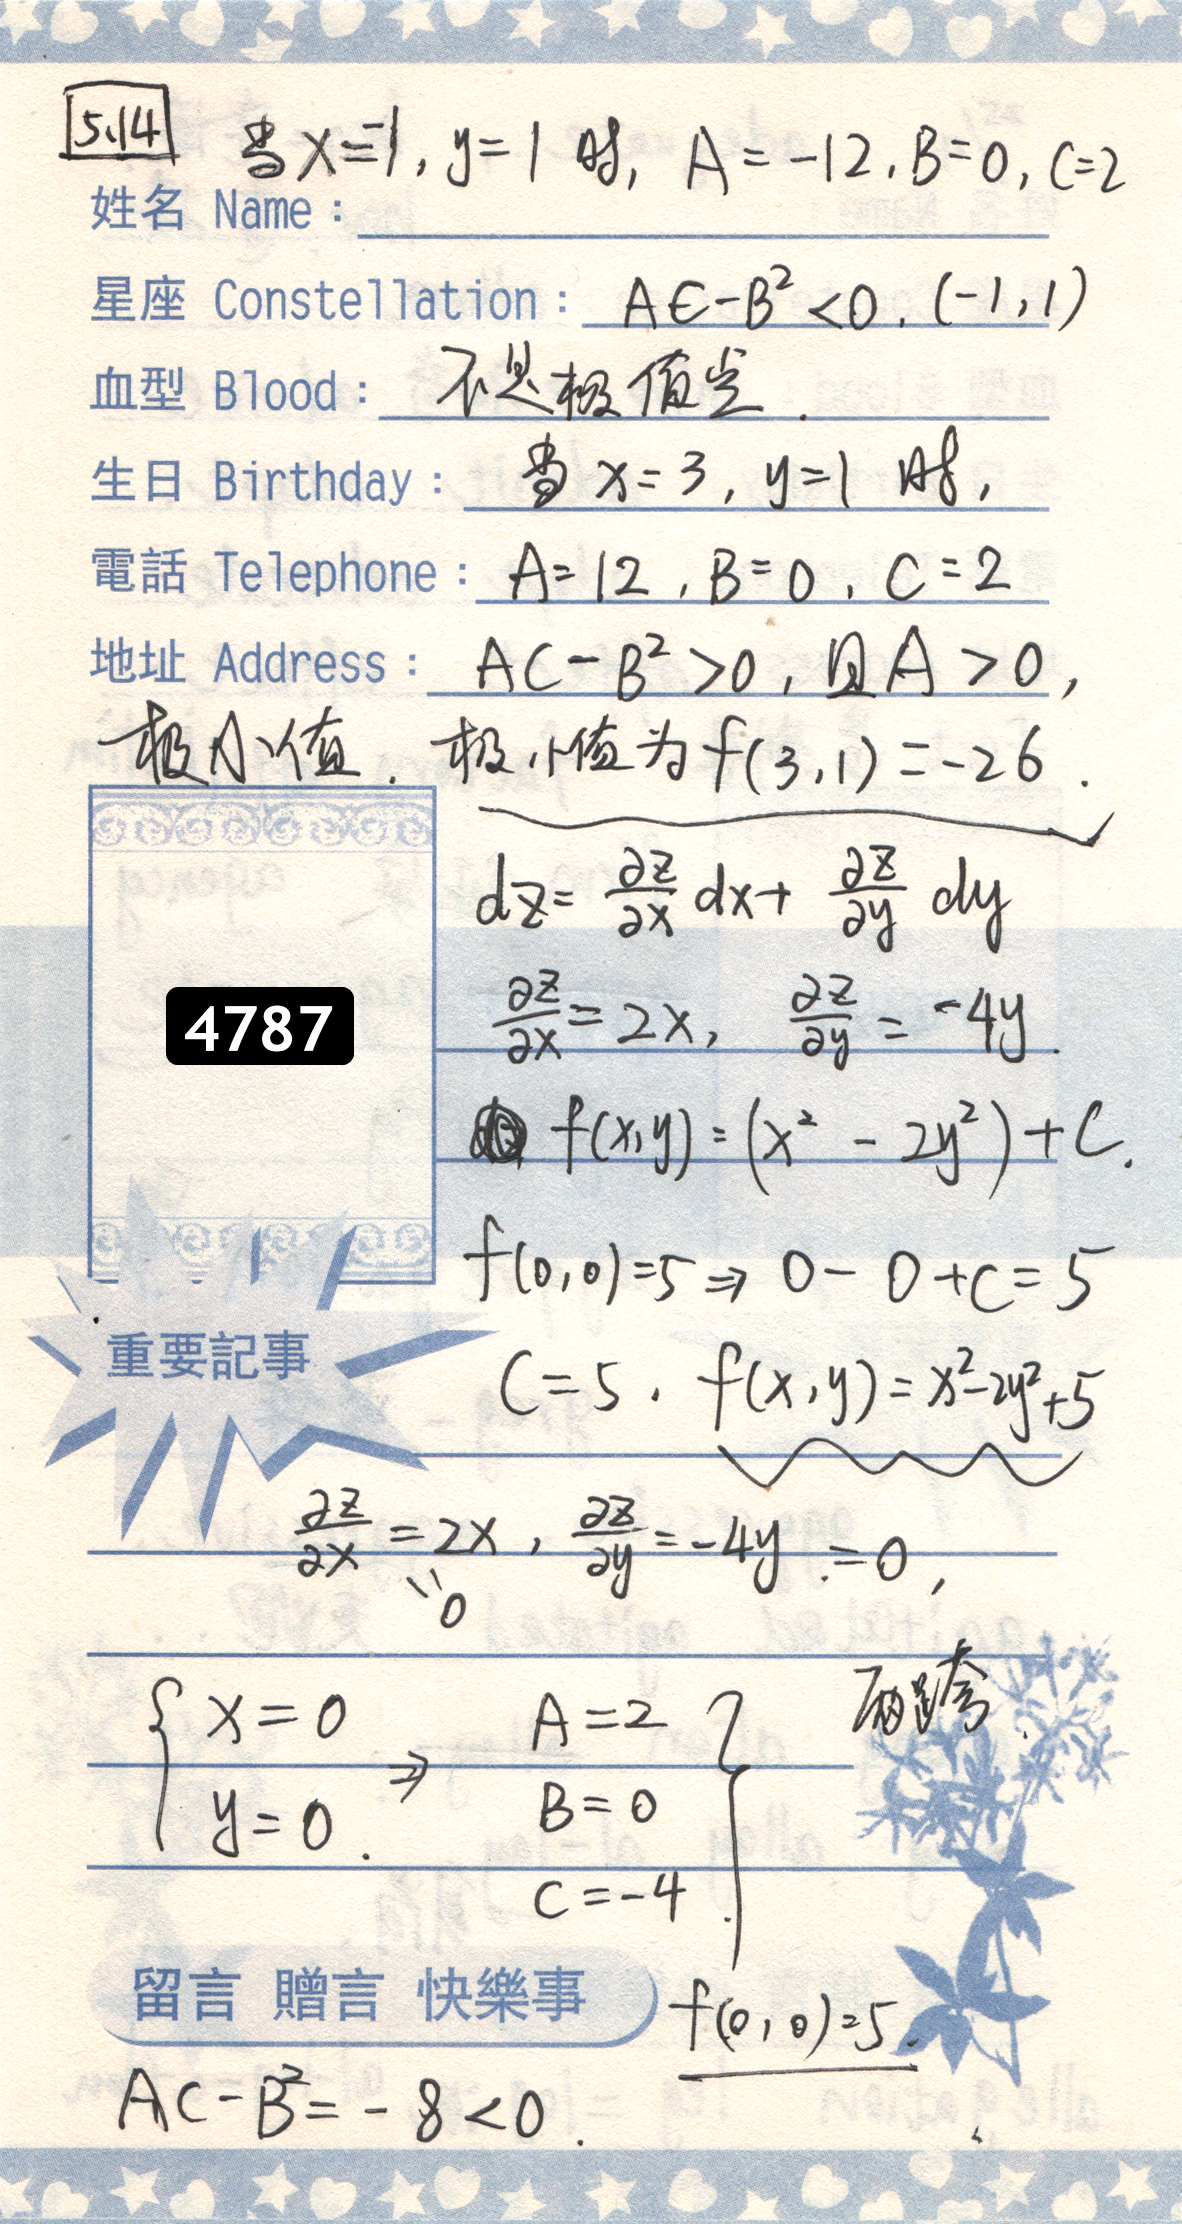 5.14
当 x=-1, y=1 时, A=-12, B=0, C=2
姓名 Name：
星座 Constellation： AC-B²<0, (-1,1)
血型 Blood： 不是极值点.
生日 Birthday： 当 x=3, y=1 时,
電話 Telephone： A=12, B=0, C=2
地址 Address： AC-B²>0, 且A>0,
极小值. 极小值为 f(3,1)=-26.
dz= ∂z/∂x dx+ ∂z/∂y dy
4787
∂z/∂x=2x, ∂z/∂y=-4y.
f(x,y)=(x²-2y²)+C.
f(0,0)=5⇒0-0+C=5
重要記事
C=5. f(x,y)=x²-2y²+5
∂z/∂x=2x, ∂z/∂y=-4y=0,
=0
{ x=0 ⇒ A=2 }
y=0. B=0
C=-4.
留言 贈言 快樂事
f(0,0)=5.
AC-B²=-8<0.